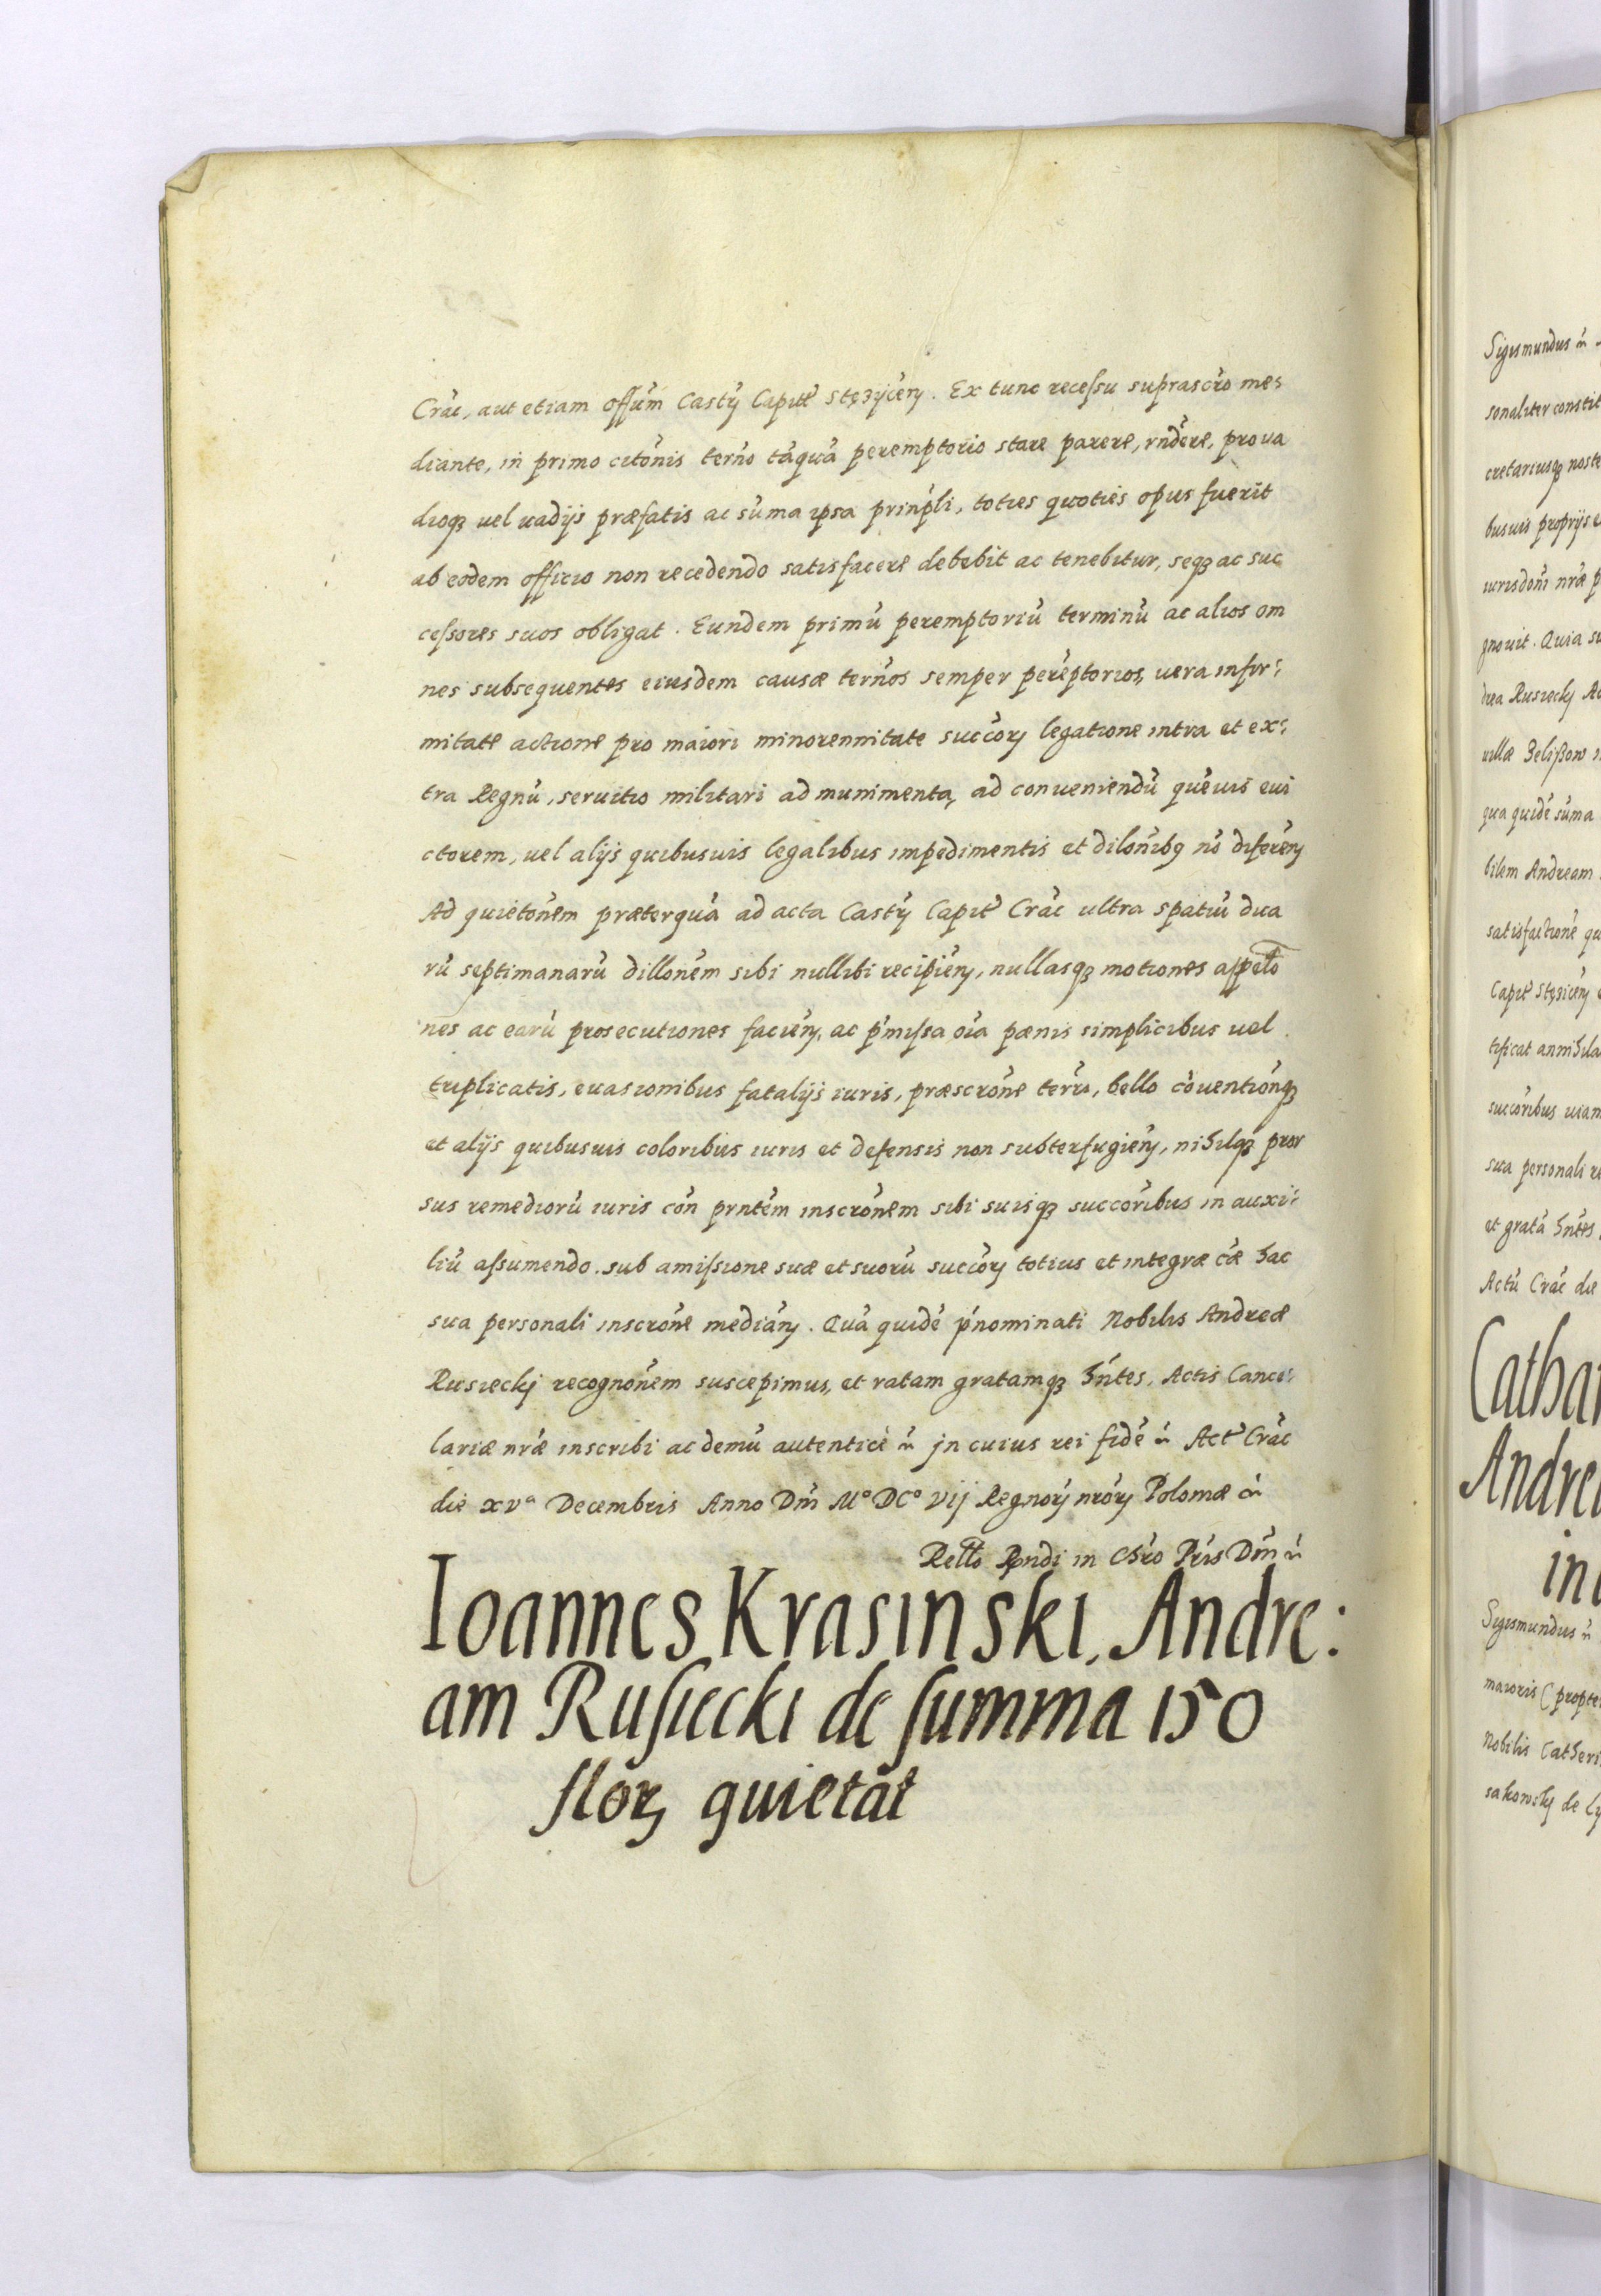 Crac̃, aut etiam offũm Castr̃ Capitł Stęzijceñ. Ex tunc recessu suprascr̃o me⸗
diante, in primo citõnis ter̃no tãquã peremptorio stare parere, rñdere, pro ua
dioq3 uel uadijs præfatis ac sũma ipsa prinp̃li, toties quoties opus fuerit
ab eodem officio non recedendo satisfacere debebit ac tenebitur, seq3 ac suc
cessores suos obligat. Eundem primũ peremptoriũ terminũ ac alios om
nes subsequentes eiusdem causæ ter̃nos semper perẽptorios, uera infir⸗
mitate actione pro maiori minorennitate succor̃ legatione intra et ex⸗
tra Regnũ, seruitio militari ad munimenta, ad conueniendũ quẽuis eui
ctorem, uel alijs quibusuis legalibus impedimentis et dilonib9 nõ difereñ
Ad quietõnem præterquã ad acta Castr̃ Capitł Crac̃ ultra spatiũ dua
rũ septimanarũ dillonẽm sibi nullibi recipieñ, nullasq3 motiones appełło
nes ac earũ prosecutiones facieñ, ac p̃missa oĩa pænis simplicibus uel
triplicatis, euasionibus fatalijs iuris, præscrõne ter̃r, bello cõuentionq3
et alijs quibusuis coloribus iuris et defensis non subterfugieñ, nihilq3 pror
sus remediorũ iuris cõn prñtem inscrõnem sibi suisq3 succor̃ibus in auxi⸗
liũ assumendo. sub amissione suæ et suorũ succor̃ totius et integræ cæ̃ hac
sua personali inscrõne mediañ. Quã quidẽ p̃nominati Nobilis Andreæ
Rusieckj recognõnem suscepimus, et ratam gratamq3 hñtes, Actis Cancel⸗
lariæ nr̃æ inscribi ac demũ autenticè ẽ jn cuius rei fidẽ ẽ Actł Crac̃
die xvª Decembris Anno Dñi Mº DCº vij Regnor̃ nrõr Poloniæ ẽ
Rełło Rñdi in Chr̃o Pr̃is Dñi ẽ
Ioannes Krasinski, Andre:
am Rusiecki de summa 150
flor̃ quietat
Sigismundus ẽ
sonaliter constit
cretariusq3 noste
busuis proprijs e
iurisdoñi nr̃æ p
gnouit. Quia su
drea Rusieckj Ac
uillæ Zeliszow
qua quidẽ sũma
bilem Andream
satisfactionẽ qu
Capitł Stęziceñ
tificat annihila
succor̃ibus uiam
sua personali re
et gratã hñtes
Actũ Crac̃ die
Cathar
Andrea
in
Sigismundus ẽ
maioris (propte
Nobilis Catheri
sakowskj de Ly